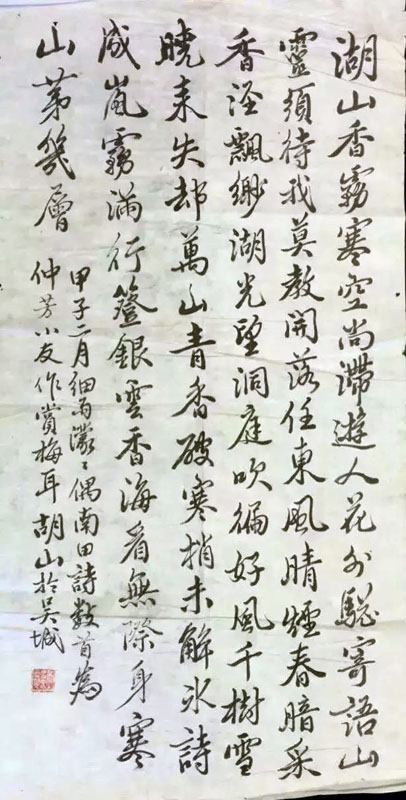 湖山香霧寒空尚滯遊人花外驄寄語山
靈須待我莫教開落任東風晴煙春暗采
香涇飄緲湖光望洞庭吹徧好風千樹雪
曉来失却萬山青香破寒梢未解冰詩
成嵐霧滿行簦銀雲香海看無際身寒
山第幾層
甲子二月細雨濛〻偶南田詩數首為
仲芳小友作賞梅耳胡山於吴城